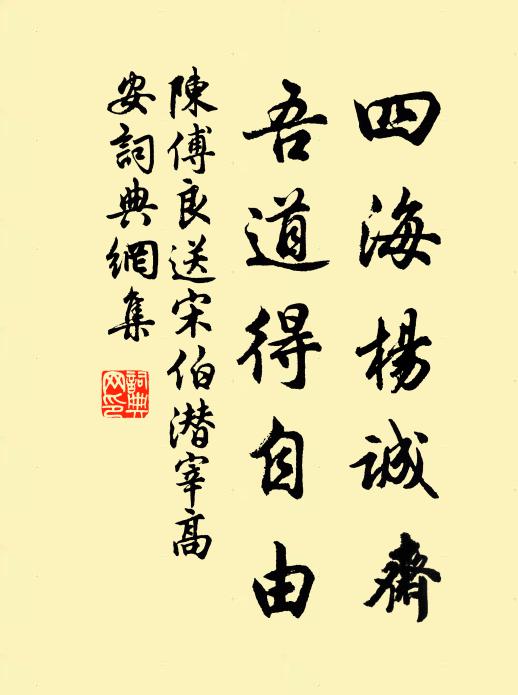 四海楊誠齋
吾道得自由
陳傅良送宋伯潛宰高
安詞典網集
詞典網印